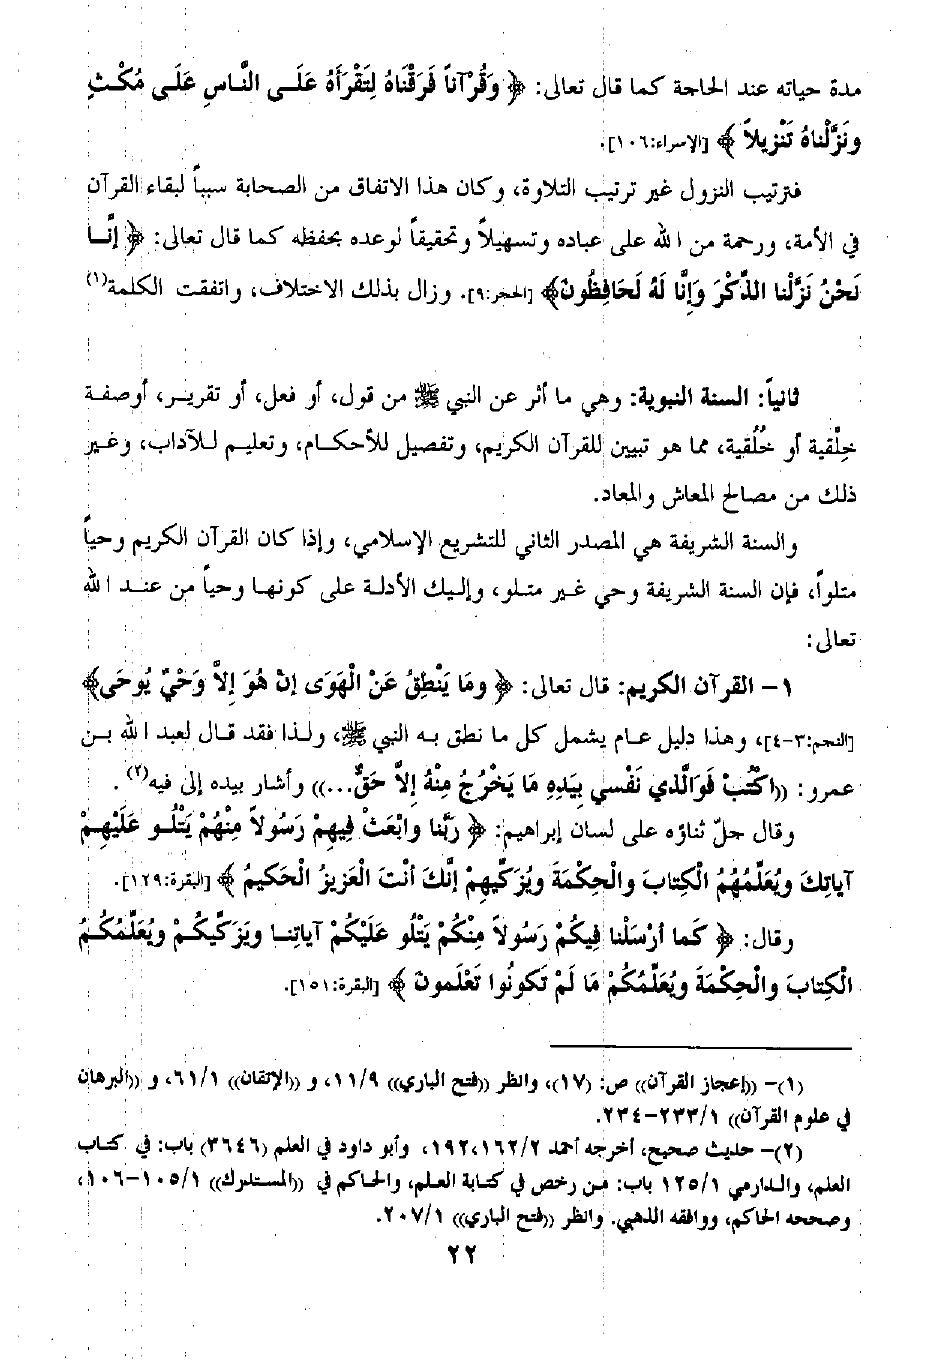 مدة حياته عند الحاجة كما قال تعالى: ﴿ وَقُرْآناً فَرَقْنَاهُ لِتَقْرَأَهُ عَلَى النَّاسِ عَلَى مُكْثٍ
ونَزَّلْناهُ تَنْزِيلاً ﴾ [الإسراء:١٠٦].
فترتيب النزول غير ترتيب التلاوة، وكان هذا الاتفاق من الصحابة سبباً لبقاء القرآن
في الأمة، ورحمة من الله على عباده وتسهيلاً وتحقيقاً لوعده بحفظه كما قال تعالى: ﴿ إنَّا
نَحْنُ نَزَّلْنا الذِّكْرَ وَإِنَّا لَهُ لَحَافِظُونَ﴾ [الحجر:٩]. وزال بذلك الاختلاف، واتفقت الكلمة(١)
ثانياً: السنة النبوية: وهي ما أثر عن النبي ﷺ من قول، أو فعل، أو تقرير، أوصفة
خِلْقية أو خُلُقية، مما هو تبيين للقرآن الكريم، وتفصيل للأحكام، وتعليم للآداب، وغير
ذلك من مصالح المعاش والمعاد.
والسنة الشريفة هي المصدر الثاني للتشريع الإسلامي، وإذا كان القرآن الكريم وحياً
متلواً، فإن السنة الشريفة وحي غير متلو، وإليك الأدلة على كونها وحياً من عند الله
تعالى:
١- القرآن الكريم: قال تعالى: ﴿ وما يَنْطِقُ عَنْ الْهَوَى إنْ هُوَ إلاَّ وَحْيٌ يُوحَى﴾
[النجم:٣-٤]، وهذا دليل عام يشمل كل ما نطق به النبي ﷺ، ولذا فقد قال لعبد الله بن
عمرو: ((اكْتُبْ فَوَالَّذي نَفْسي بِيَدِهِ مَا يَخْرُجُ مِنْهُ إلاَّ حَقٌّ...)) وأشار بيده إلى فيه(٢).
وقال جلّ ثناؤه على لسان إبراهيم: ﴿ رَبَّنا وابْعَثْ فِيهِمْ رَسُولاً مِنْهُمْ يَتْلُو عَلَيْهِمْ
آياتِكَ ويُعَلِّمُهُمُ الْكِتابَ والْحِكْمَةَ ويُزَكِّيهِمْ إنَّكَ أنْتَ الْعَزِيزُ الْحَكِيمُ ﴾ [البقرة:١٢٩].
وقال: ﴿ كَما أرْسَلْنا فِيكُمْ رَسُولاً مِنْكُمْ يَتْلُو عَلَيْكُمْ آياتِنا ويُزَكِّيكُمْ ويُعَلِّمُكُمُ
الْكِتابَ والْحِكْمَةَ ويُعَلِّمُكُمْ مَا لَمْ تَكُونُوا تَعْلَمونَ ﴾ [البقرة:١٥١].
(١)- ((إعجاز القرآن)) ص: (١٧)، وانظر ((فتح الباري)) ١١/٩، و ((الإتقان)) ٦١/١، و ((البرهان
في علوم القرآن)) ٢٣٣/١-٢٣٤.
(٢)- حديث صحيح، أخرجه أحمد ١٦٢/٢،١٩٢، وأبو داود في العلم (٣٦٤٦) باب: في كتاب
العلم، والدارمي ١٢٥/١ باب: من رخص في كتابة العلم، والحاكم في ((المستدرك)) ١٠٥/١-١٠٦،
وصححه الحاكم، ووافقه الذهبي. وانظر ((فتح الباري)) ٢٠٧/١.
٢٢